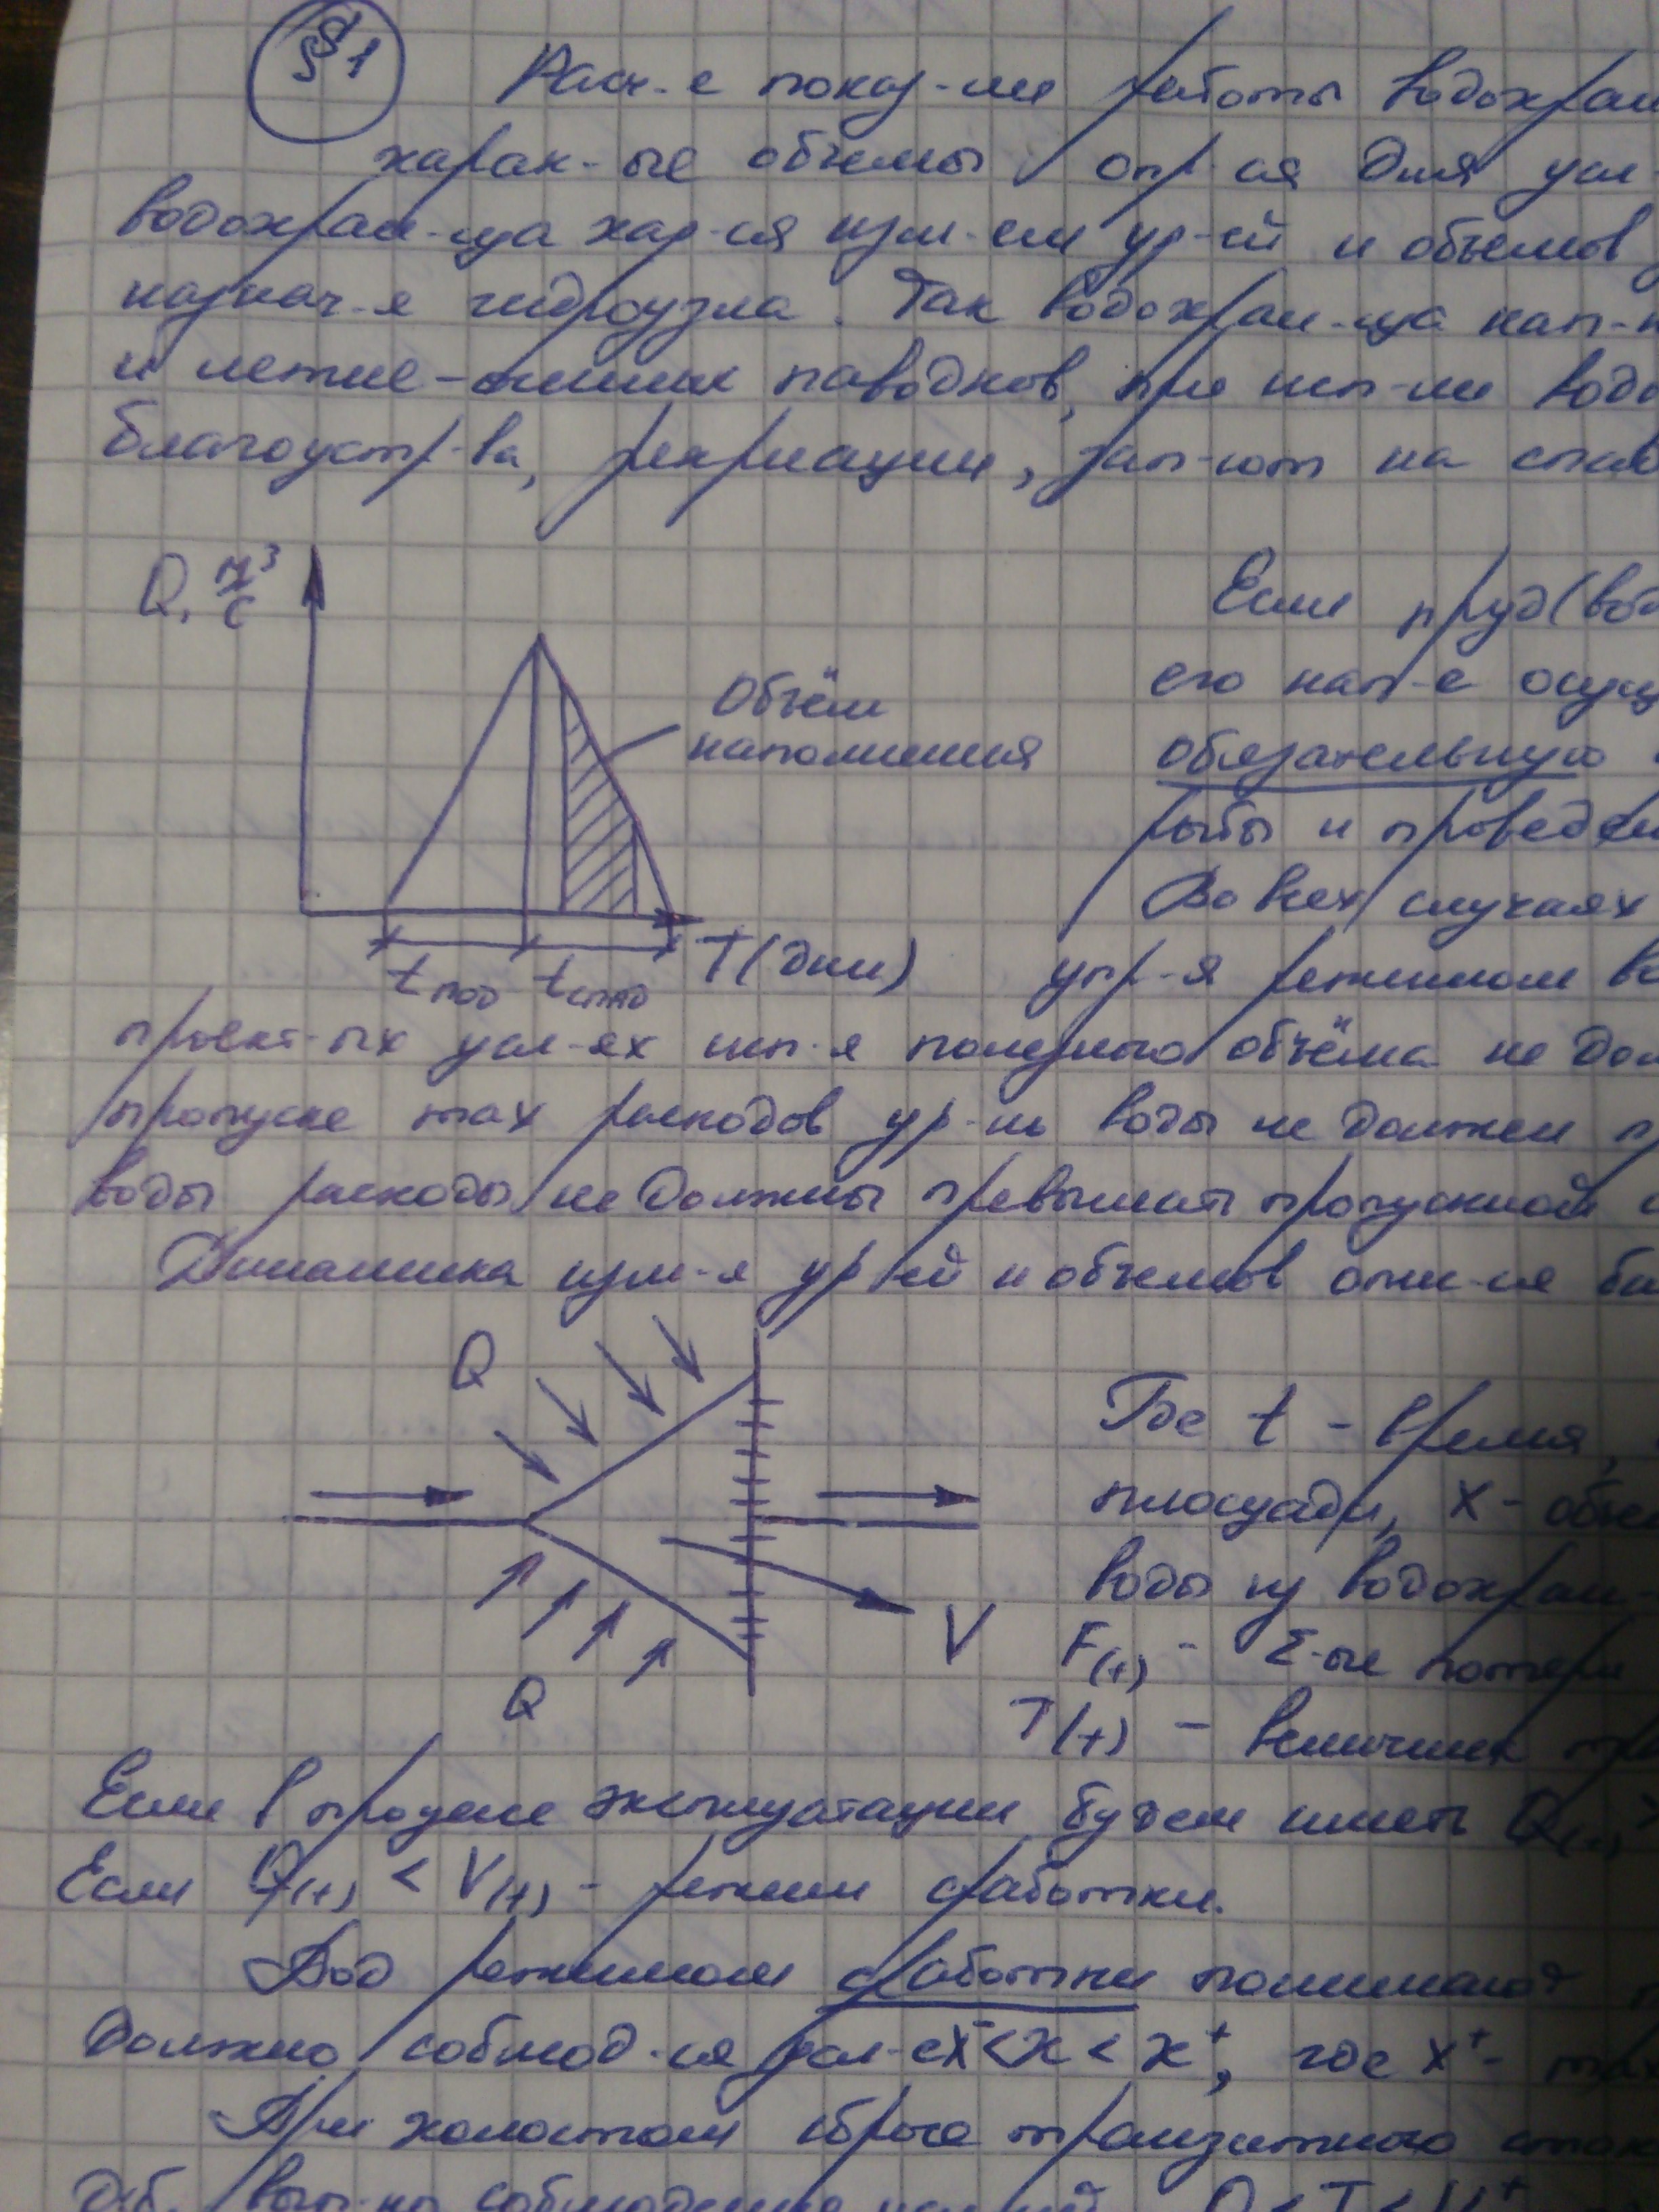 §1
Расч-е показ-ли работы водохран
харак-ые объемы опр-ся для усл-
водохран-ща хар-ся изм-ем ур-ей и объемов
назнач-я гидроузла. Так водохран-ща нап-
и летне-осенних паводков, при исп-ии водо
благоустр-ва, рекреации, зап-ют на спад
Q, м³/с
Объём
наполнения
tпод tспад T(дни)
Если пруд(вод
его нап-е осущ
обязательную
рыбы и проведен
Во всех случаях
упр-я режимом во
проект-ых усл-ях исп-я полезного объёма не дол
пропуске max расходов ур-нь воды не должен п
воды расходы не должны превышать пропускной с
Динамика изм-я ур-ей и объемов опи-ся ба
Q
V
Q
Где t - время,
площади, X - объе
воды из водохран-
F(t) - Σ-ые потери
T(t) - величина
Если в процессе эксплуатации будем иметь Q(t) >
Если Q(t) < V(t) - режим сработки.
Под режимом сработки понимают
Должно соблюд-ся усл-е x⁻<x<x⁺, где x⁺- max
При холостом сбросе транзитного сток
Д.б. вып-но соблюдение 0 < T < U⁺